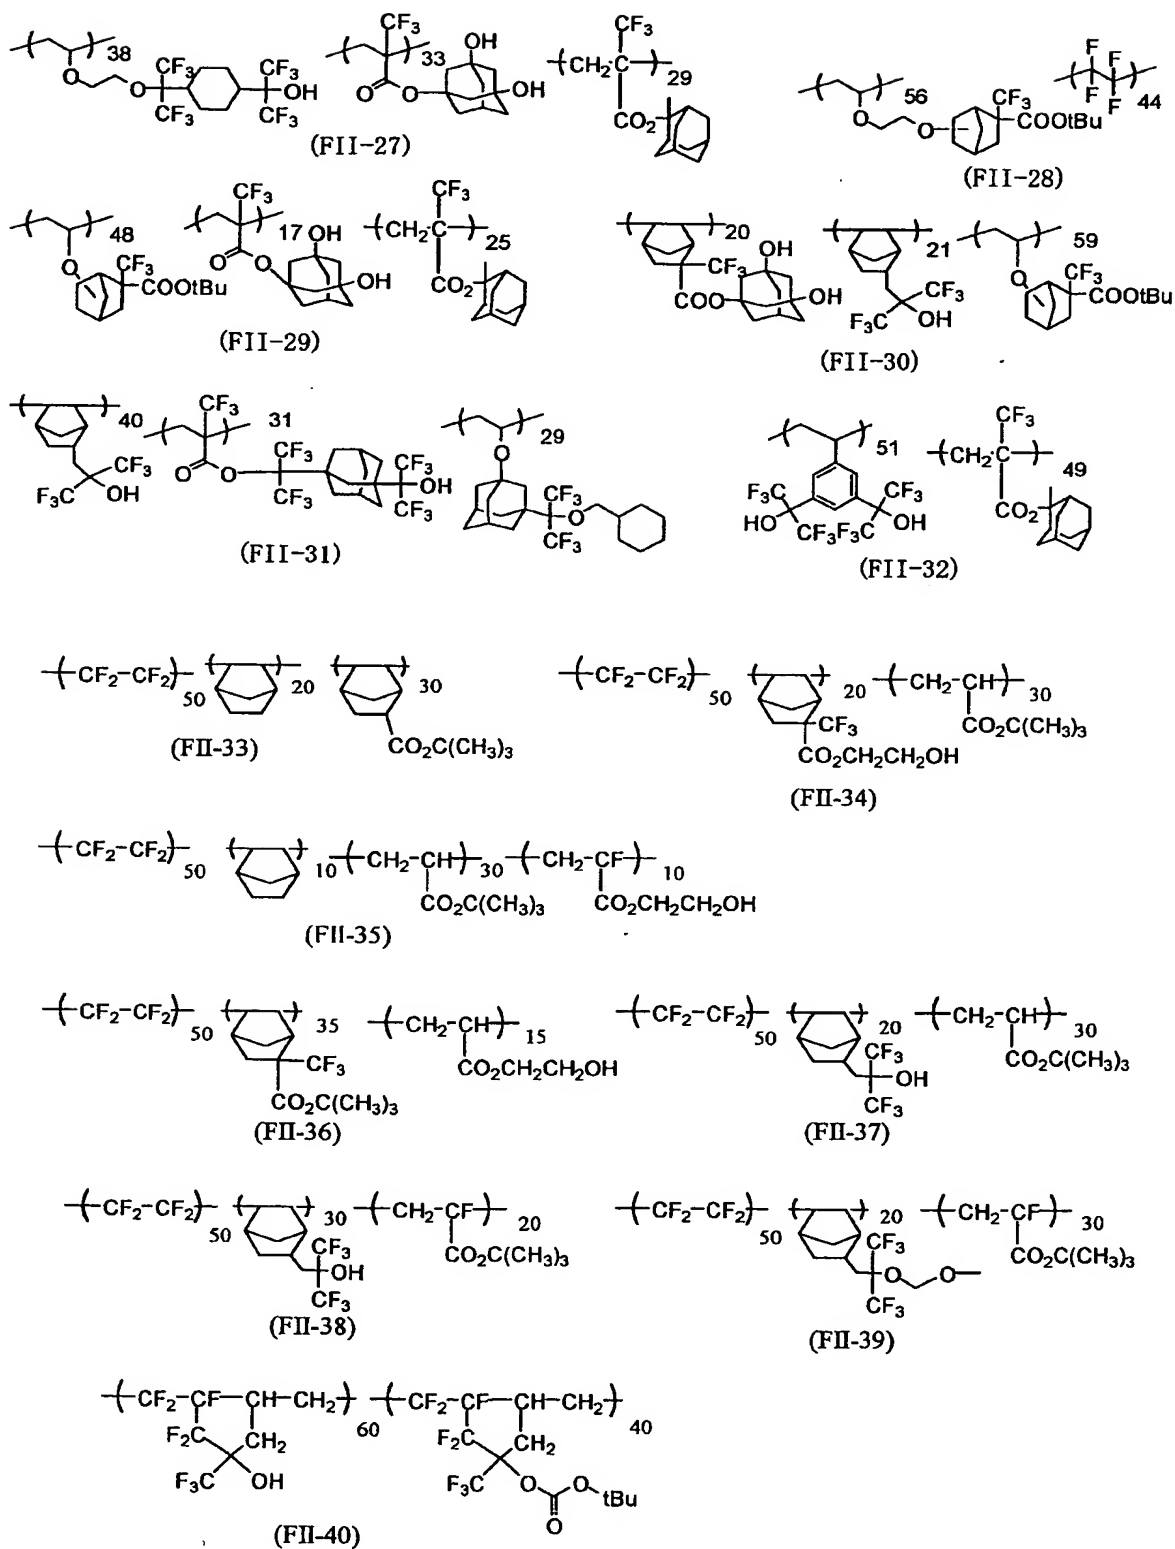 38 CF3 CF3 CF3 OH CF3 CF3 O O
CF3 33 OH O O OH
CF3 CH2 C 29 CO2
(FII-27)
56 O O CF3 COOtBu F F F F 44
(FII-28)
48 O CF3 COOtBu
CF3 17 OH O O OH
CF3 CH2 C 25 CO2
(FII-29)
20 CF3 COO OH OH
21 CF3 F3C OH
59 O CF3 COOtBu
(FII-30)
40 CF3 F3C OH
CF3 31 O O CF3 CF3 CF3 OH CF3
29 O CF3 O CF3
(FII-31)
51 F3C CF3 HO CF3 F3C OH
CF3 CH2 C 49 CO2
(FII-32)
CF2-CF2 50 20 30
CO2C(CH3)3
(FII-33)
CF2-CF2 50 20 CH2-CH 30
CF3 CO2C(CH3)3
CO2CH2CH2OH
(FII-34)
CF2-CF2 50 10 CH2-CH 30 CH2-CF 10
CO2C(CH3)3 CO2CH2CH2OH
(FII-35)
CF2-CF2 50 35 CH2-CH 15
CF3 CO2CH2CH2OH
CO2C(CH3)3
(FII-36)
CF2-CF2 50 20 CH2-CH 30
CF3 OH CF3 CO2C(CH3)3
(FII-37)
CF2-CF2 50 30 CH2-CF 20
CF3 OH CF3 CO2C(CH3)3
(FII-38)
CF2-CF2 50 20 CH2-CF 30
CF3 O O CF3 CO2C(CH3)3
(FII-39)
CF2-CF-CH-CH2 60 CF2-CF-CH-CH2 40
F2C CH2 F2C CH2
F3C OH F3C O O tBu
O
(FII-40)